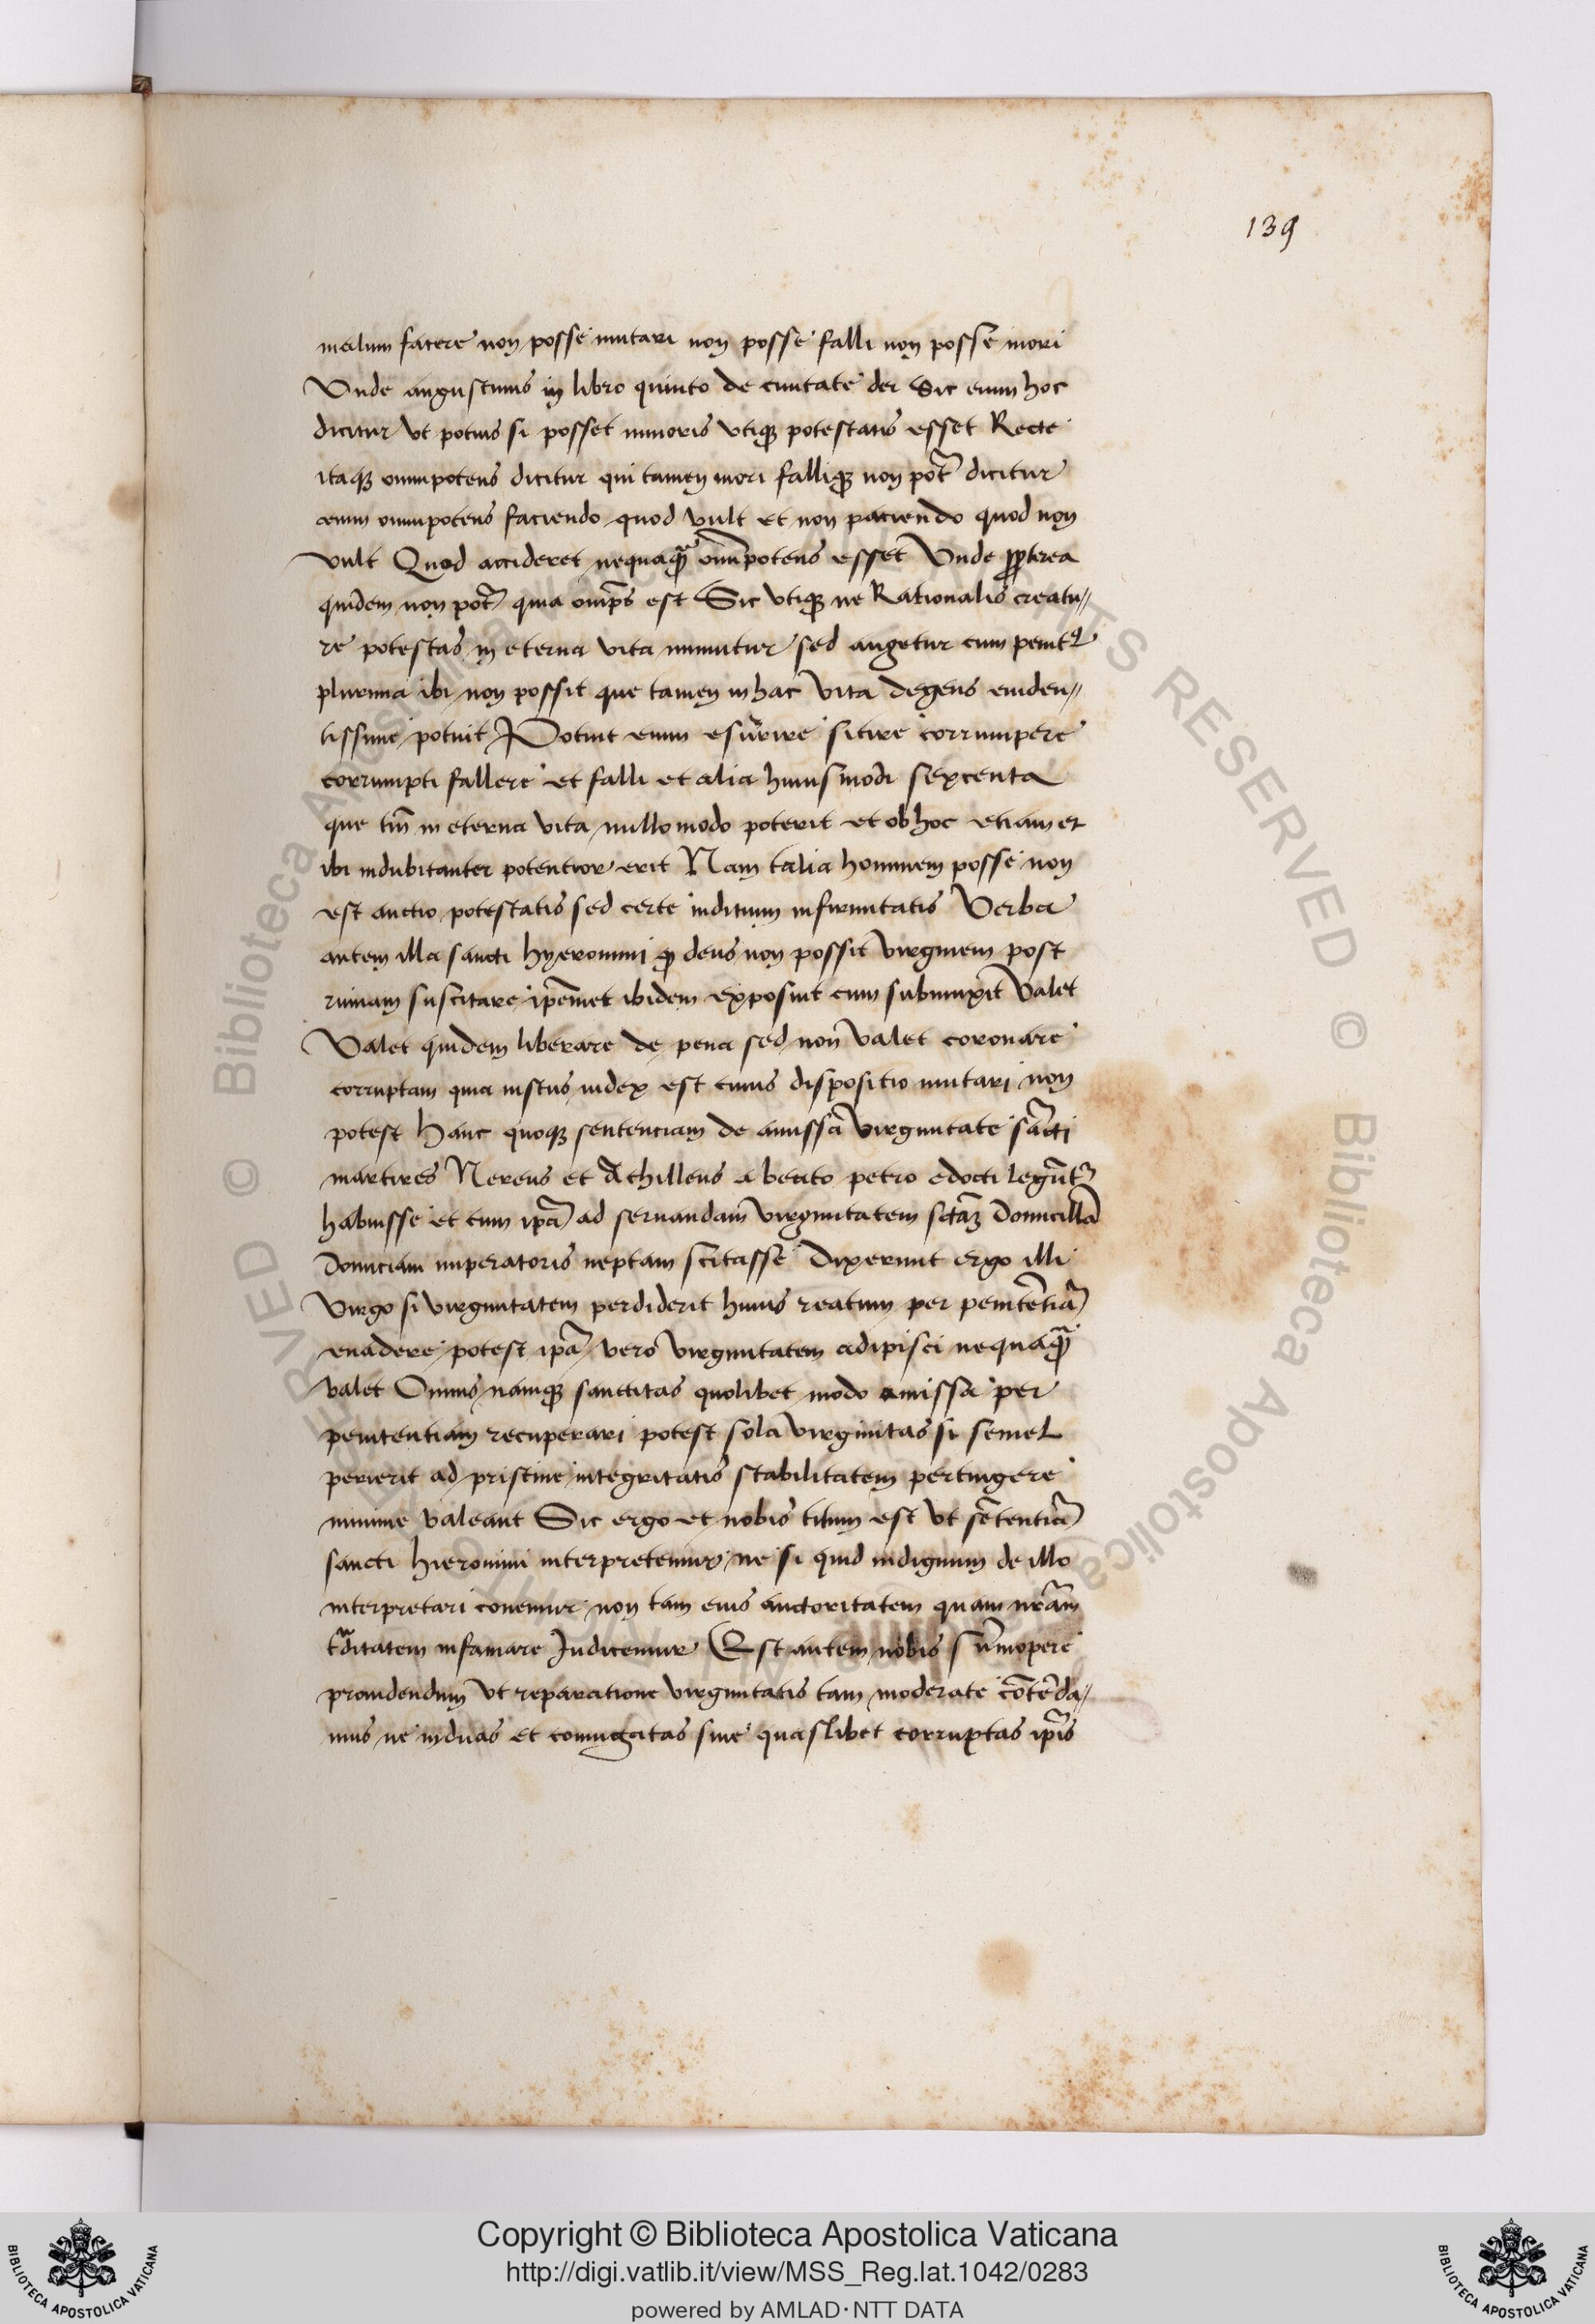 139
malum facere non posse mutari non posse falli non posse mori
Vnde augustinus in libro quinto de ciuitate dei Sic enim hoc
dicitur vt potius si posset minoris vtiqȝ potestatis esset Recte
itaqȝ omnipotens dicitur qui tamen mori falliqȝ non pot̃ dicitur
enim omnipotens faciendo quod vult et non paciendo quod non
vult Quod accideret nequaqͣ̃ om̃ipotens esset Vnde ꝓpterea
quidem non pot̃ quia om̃ps est Sic vtiqȝ ne Rationalis creatu//
re potestas in eterna vita minuitur sed augetur cum penitꝰ
plurima ibi non possit que tamen in hac vita degens euiden//
tissime potuit Potuit enim esurire sitire corrumpere
corrumpi fallere et falli et alia huiusmodi sexcenta
que tm̃ in eterna vita nullo modo poterit et ob hoc etiam et
ibi indubitanter potentior erit Nam talia hominem posse non
est auctio potestatis sed certe inditium infirmitatis Verba
autem illa sancti hyeronimi ꝙ deus non possit virginem post
ruinam suscitare ip̃emet ibidem exposuit cum subiunxit valet
Valet quidem liberare de pena sed non valet coronare
corruptam quia iustus iudex est cuius dispositio mutari non
potest Hanc quoqȝ sentenciam de amissa virginitate sãcti
martires Nereus et Achilleus a beato petro edocti legũtᷣ
habuisse et cum ip̃a ad seruandam virginitatem sctãȝ Domicillã
Domiciani imperatoris neptam scitasse Dixerunt ergo illi
Virgo si virginitatem perdiderit huius reatum per penitẽtiã
euadere potest ip̃ã vero virginitatem adipisci nequaqͣ̃
valet Omnis namqȝ sanctitas quolibet modo amissa per
penitentiam recuperari potest sola virginitas si semel
perierit ad pristine integritatis stabilitatem pertingere
minime valeant Sic ergo et nobis est vt sẽtentiã
sancti Hieronimi interpretemur ne si quid indignum de illo
interpretari conemur non tam eius auctoritatem quam nr̃am
infamare Iudicemur Est autem nobis sũmopere
prouidendum vt reparatione virginitatis tam moderate cõtẽda//
mus ne viduas et coniugatas siue quaslibet corruptas ip̃is
Copyright © Biblioteca Apostolica Vaticana
http://digi.vatlib.it/view/MSS_Reg.lat.1042/0283
powered by AMLAD·NTT DATA
BIBLIOTECA APOSTOLICA VATICANA
BIBLIOTECA APOSTOLICA VATICANA